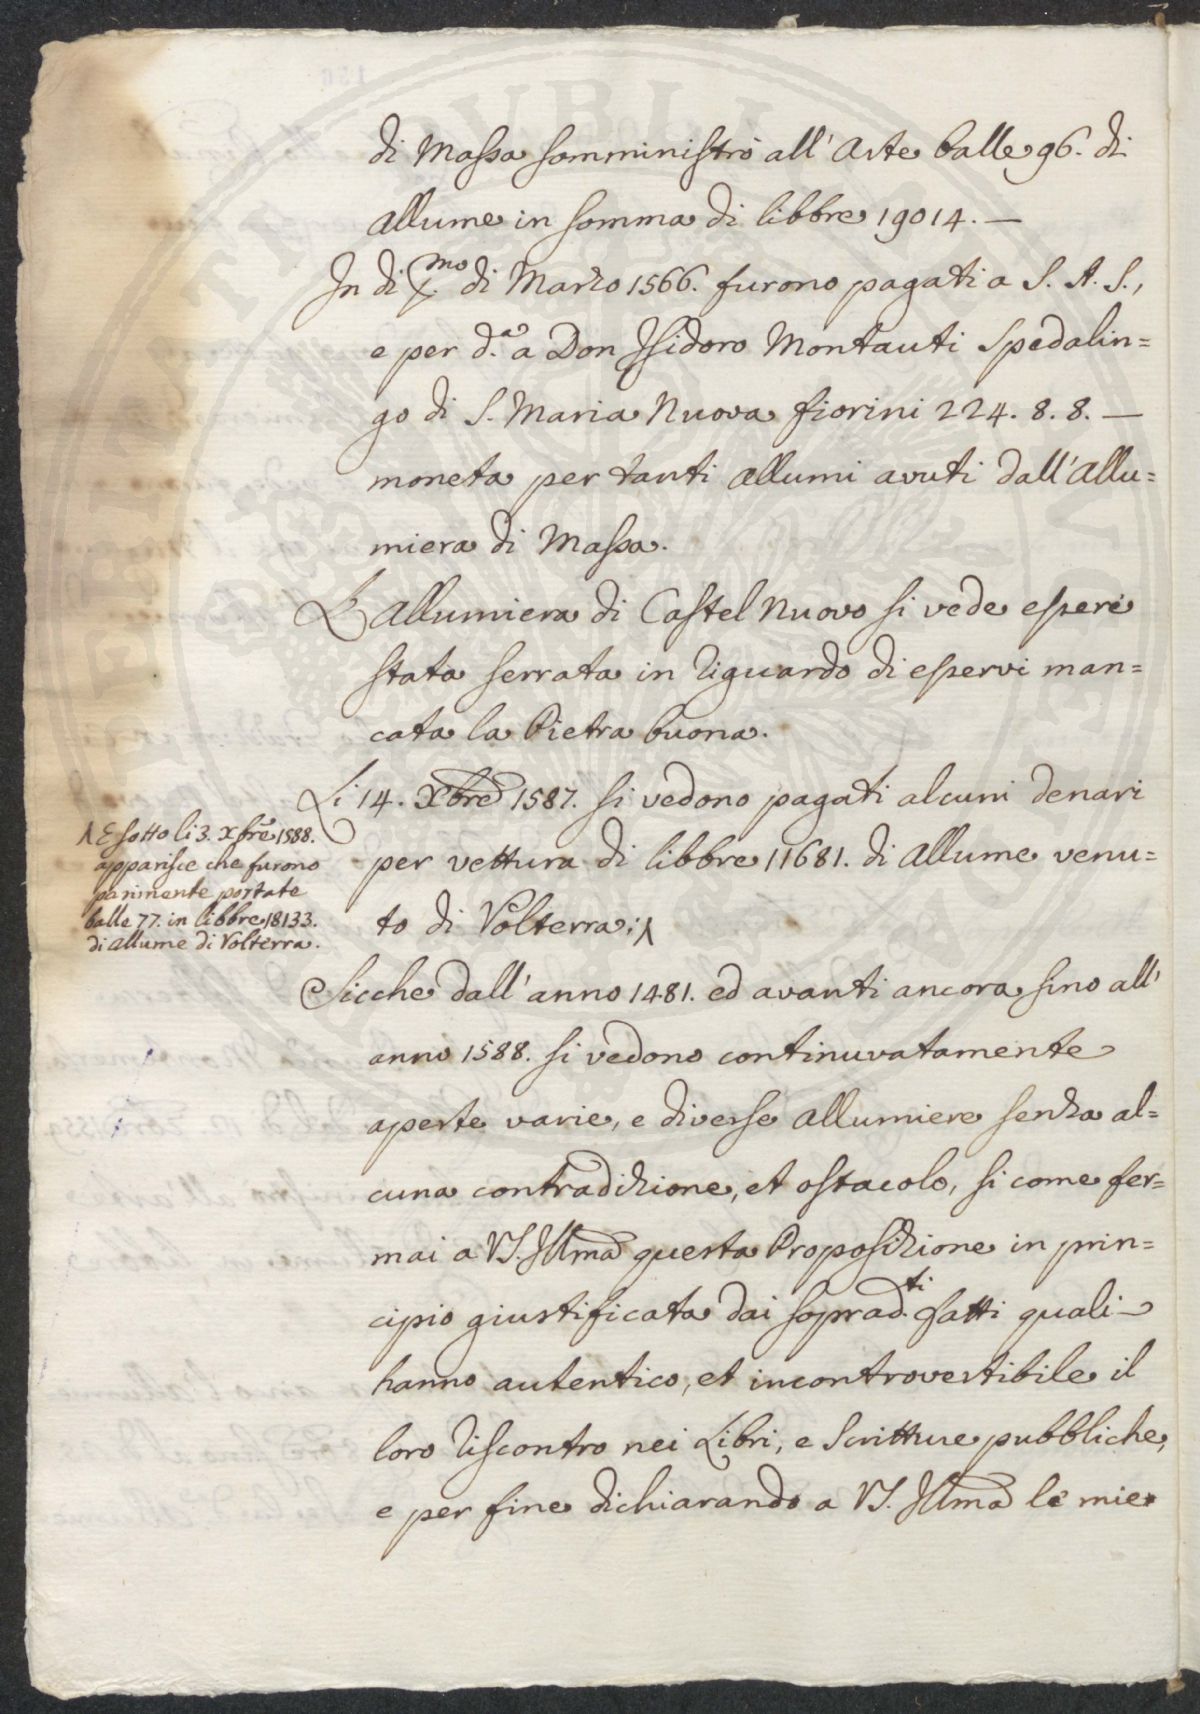 di Massa somministrò all' Arte balle 96. di
allume in somma di libbre 19014. —
In di p.mo di Marzo 1566. furono pagati a S. A. S.,
e per d.a a Don Isidoro Montauti Spedalin=
go di S. Maria Nuova fiorini 224. 8. 8. —
moneta per tanti allumi avuti dall' Allu=
miera di Massa.
L' Allumiera di Castel Nuovo si vede essere
stata serrata in riguardo di esservi man=
cata la Pietra buona.
Li 14. Xbre 1587. si vedono pagati alcuni denari
per vettura di libbre 11681. di Allume venu=
to di Volterra; ʌ
ʌ E sotto li 3. xbre 1588.
apparisce che furono
parimente portate
balle 77. in libbre 18133.
di allume di Volterra.
Sicche dall' anno 1481. ed avanti ancora sino all'
anno 1588. si vedono continuvatamente
aperte varie, e diverse allumiere senza al=
cuna contradizione, et ostacolo, si come fer=
mai a VS. Illma questa Proposizione in prin=
cipio giustificata dai soprad.ti fatti quali —
hanno autentico, et incontrovertibile il
loro riscontro nei Libri, e Scritture pubbliche,
e per fine dichiarando a VS. Illma le mie